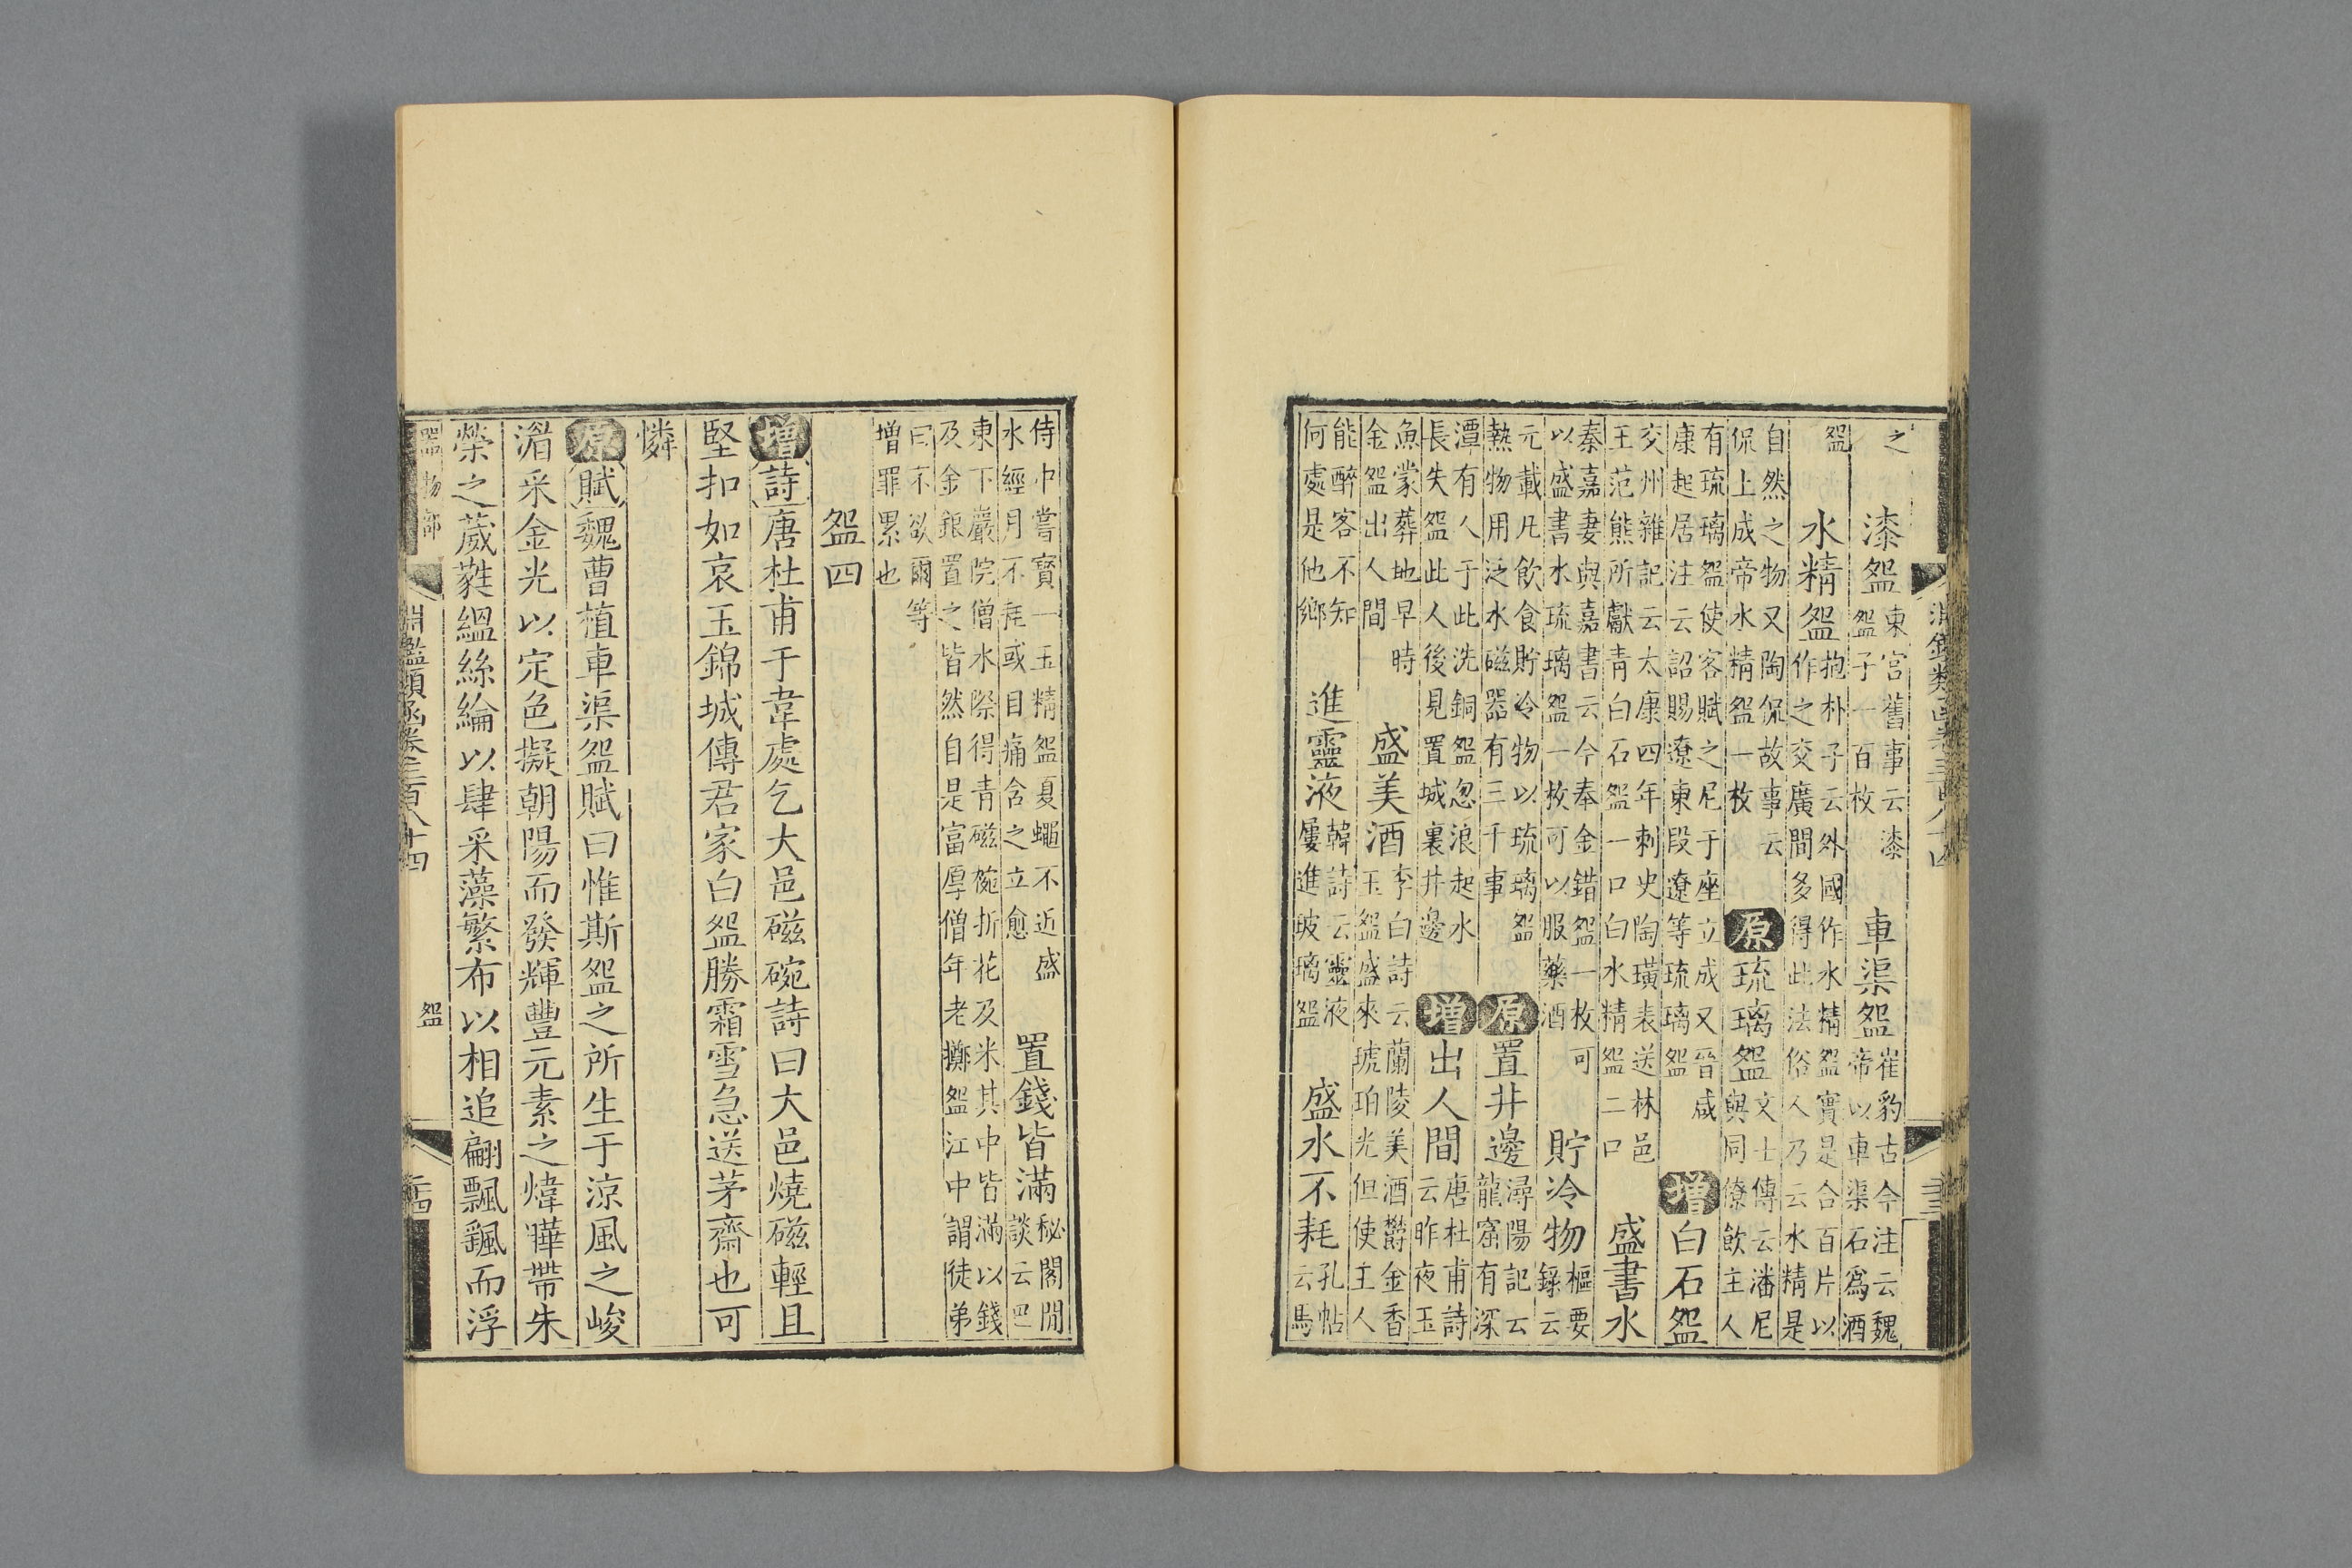 之
漆盌
東宮舊事云漆
盌子一百枚
車渠盌
崔豹古今注云魏
帝以車渠石爲酒
盌
水精盌
抱朴子云外國作水精盌實是合百片以
作之交廣間多得此法俗人乃云水精是
自然之物又陶侃故事云
侃上成帝水精盌一枚
原琉璃盌
文士傳云潘尼
與同僚飲主人
有琉璃盌使客賦之尼于座立成又晉咸
康起居注云詔賜遼東段遼等琉璃盌
增白石盌
交州雜記云太康四年刺史陶璜表送林邑
王范熊所獻青白石盌一口白水精盌二口
盛書水
秦嘉妻與嘉書云今奉金錯盌一枚可
以盛書水琉璃盌一枚可以服藥酒
貯冷物
樞要
錄云
元載凡飲食貯冷物以琉璃盌
熱物用泛水磁器有三千事
原置井邊
潯陽記云
龍窟有深
潭有人于此洗銅盌忽浪起水
長失盌此人後見置城裏井邊
增出人間
唐杜甫詩
云昨夜玉
魚蒙葬地早時
金盌出人間
盛美酒
李白詩云蘭陵美酒鬱金香
玉盌盛來琥珀光但使主人
能醉客不知
何處是他鄉
進靈液
韓詩云靈液
屢進玻璃盌
盛水不耗
孔帖
云馬
侍中嘗寳一玉精盌夏蠅不近盛
水經月不耗或目痛含之立愈
置錢皆滿
秘閣閒
談云巴
東下巖院僧水際得青磁椀折花及米其中皆滿以錢
及金銀置之皆然自是富厚僧年老擲盌江中謂徒弟
曰不欲爾等
增罪累也
盌四
增詩唐杜甫于韋處乞大邑磁碗詩曰大邑燒磁輕且
堅扣如哀玉錦城傳君家白盌勝霜雪急送茅齋也可
憐
原賦魏曹植車渠盌賦曰惟斯盌之所生于涼風之峻
湄采金光以定色擬朝陽而發輝豐元素之煒曄帶朱
榮之葳蕤縕絲綸以肆采藻繁布以相追翩飄颻而浮
器物部
淵鑑類函卷三百八十四
盌